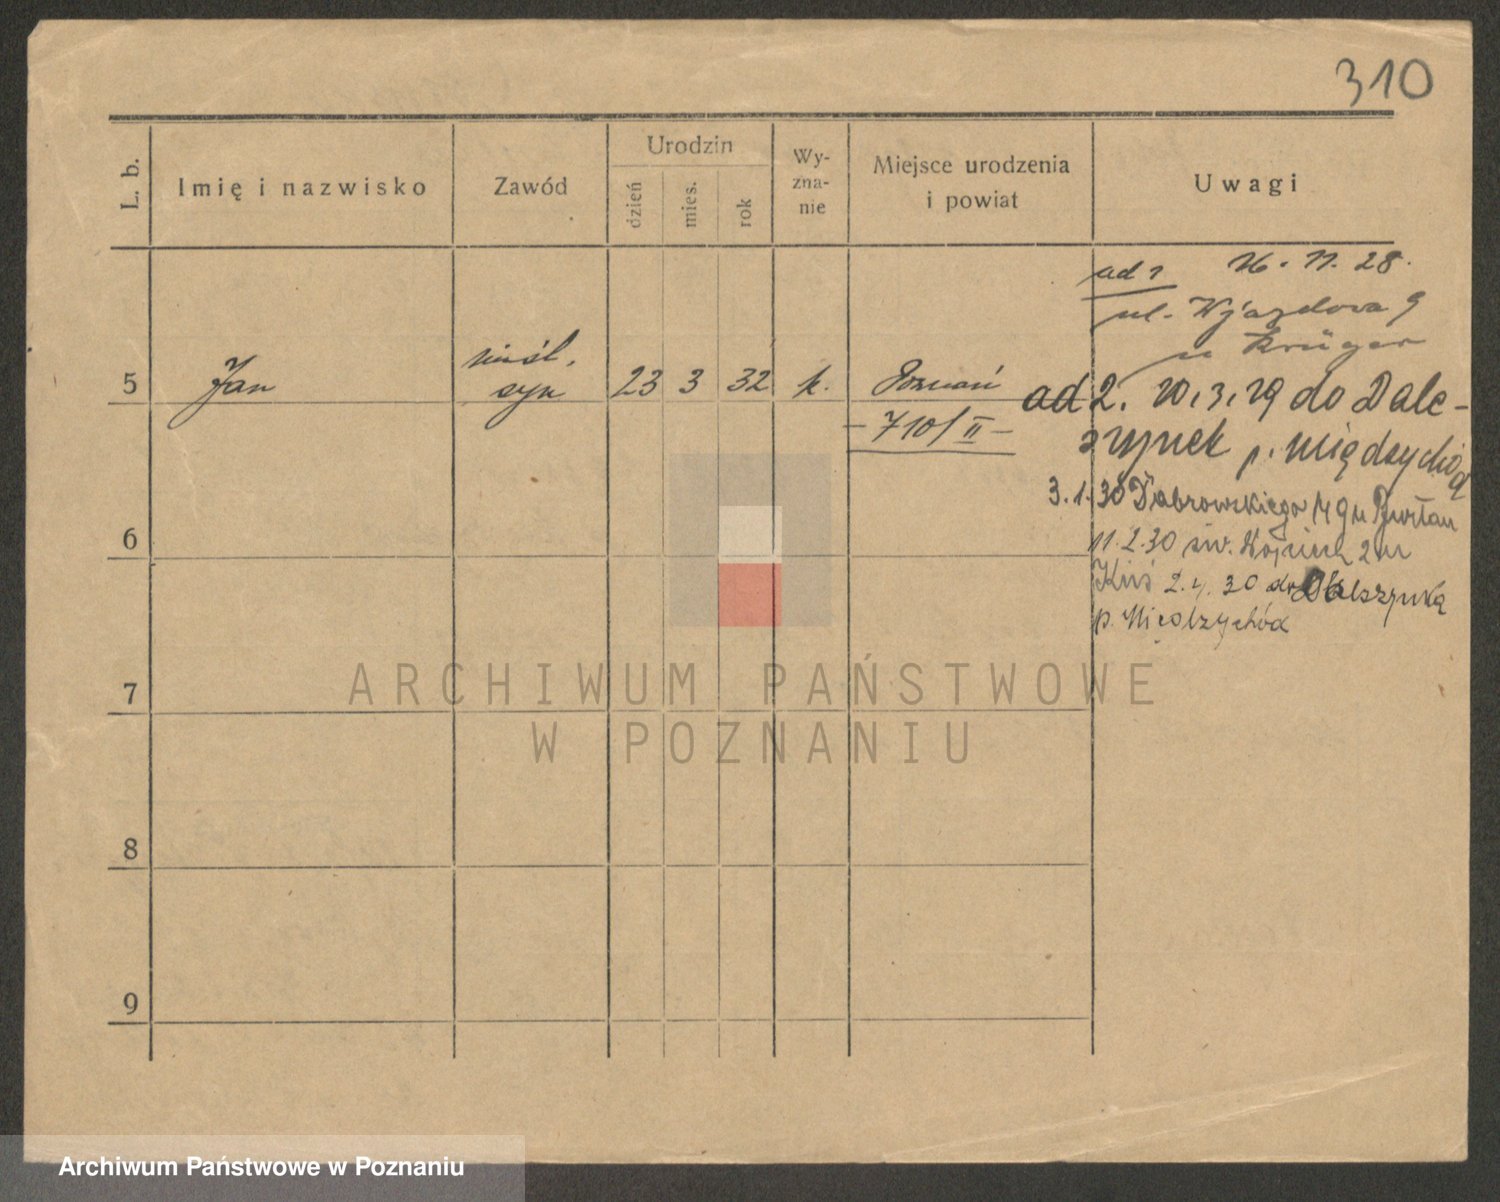 310
L. b.
Imię i nazwisko
Zawód
Urodzin
dzień
mies.
rok
Wy-
zna-
nie
Miejsce urodzenia
i powiat
Uwagi
5
Jan
nieśl.
syn
23 3 32
k.
Poznań
-710/II-
6
7
8
9
ad 1 16.11.28.
ul. Wjazdowa 9
u Krüger
ad 2. 20.3.29 do Dale-
szynek p. Międzychód
3.1.30 Dąbrowskiego 49 u
11.2.30 św. Wojciech 2 u
Kuś 2.4.30 do
p. Międzychód
ARCHIWUM PAŃSTWOWE
W POZNANIU
Archiwum Państwowe w Poznaniu